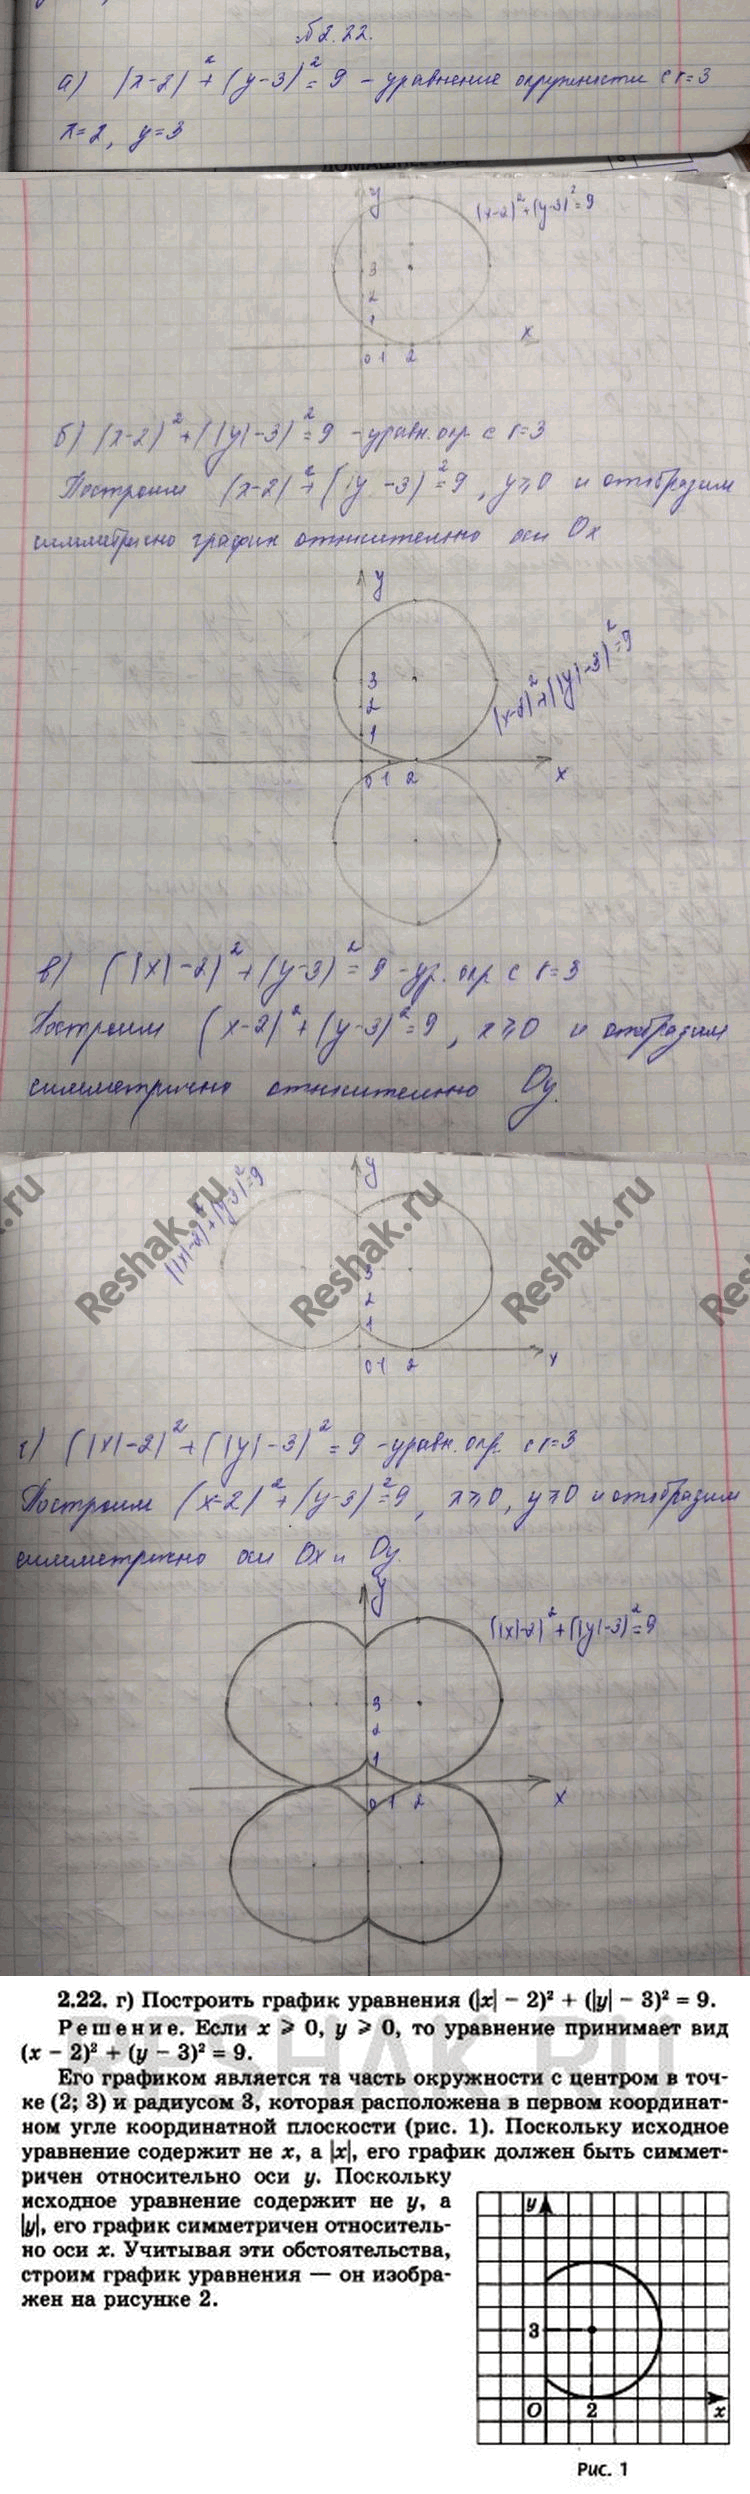 №2.22.
а) (x-2)² + (y-3)² = 9 - уравнение окружности с r=3
x=2, y=3
y
(x-2)²+(y-3)²=9
3
2
1
x
0 1 2
б) (x-2)²+(|y|-3)²=9 - уравн. окр с r=3
Построим (x-2)²+(y-3)²=9, y⩾0 и отобразим
симметрично график относительно оси Ox
y
(x-2)²+(|y|-3)²=9
3
2
1
0 1 2
x
в) (|x|-2)²+(y-3)²=9 - ур. окр с r=3
Построим (x-2)²+(y-3)²=9, x⩾0 и отобразим
симметрично относительно Oy.
(|x|-2)²+(y-3)²=9
y
Reshak.ru
Reshak.ru
Reshak.ru
3
2
1
0 1 2
x
г) (|x|-2)²+(|y|-3)²=9 - уравн. окр. с r=3
Построим (x-2)²+(y-3)²=9, x⩾0, y⩾0 и отобразим
симметрично оси Ox и Oy.
y
(|x|-2)²+(|y|-3)²=9
3
2
1
0 1 2
x
2.22. г) Построить график уравнения (|x| − 2)² + (|y| − 3)² = 9.
Решение. Если x ⩾ 0, y ⩾ 0, то уравнение принимает вид
(x − 2)² + (y − 3)² = 9.
Его графиком является та часть окружности с центром в точ-
ке (2; 3) и радиусом 3, которая расположена в первом координат-
ном угле координатной плоскости (рис. 1). Поскольку исходное
уравнение содержит не x, а |x|, его график должен быть симмет-
ричен относительно оси y. Поскольку
исходное уравнение содержит не y, а
|y|, его график симметричен относитель-
но оси x. Учитывая эти обстоятельства,
строим график уравнения — он изобра-
жен на рисунке 2.
y
3
O
2
x
Рис. 1
RESHAK.RU